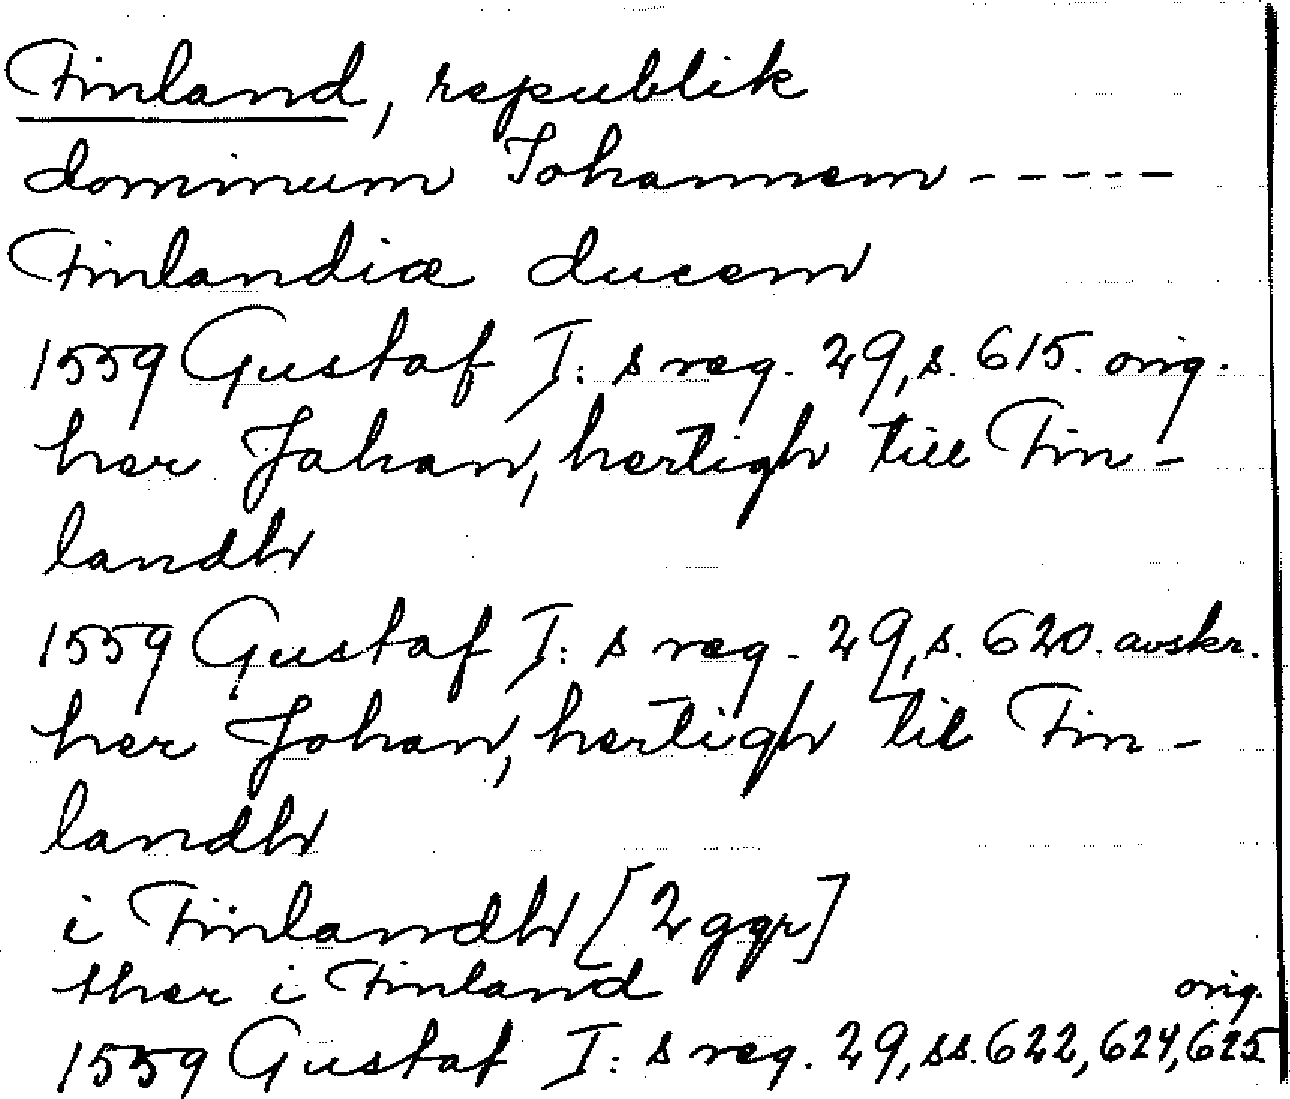 Finland, republik
dominum Johannem - - - - -
Finlandiæ ducem
1559 Gustaf I:s reg. 29, s. 615. orig.
her Johan, hertigh till Fin-
landh
1559 Gustaf I:s reg. 29, s. 620. avskr.
her Johan, hertigh til Fin-
landh
i Finlandh [2 ggr]
ther i Finland
orig.
1559 Gustaf I:s reg. 29, ss. 622, 624, 625